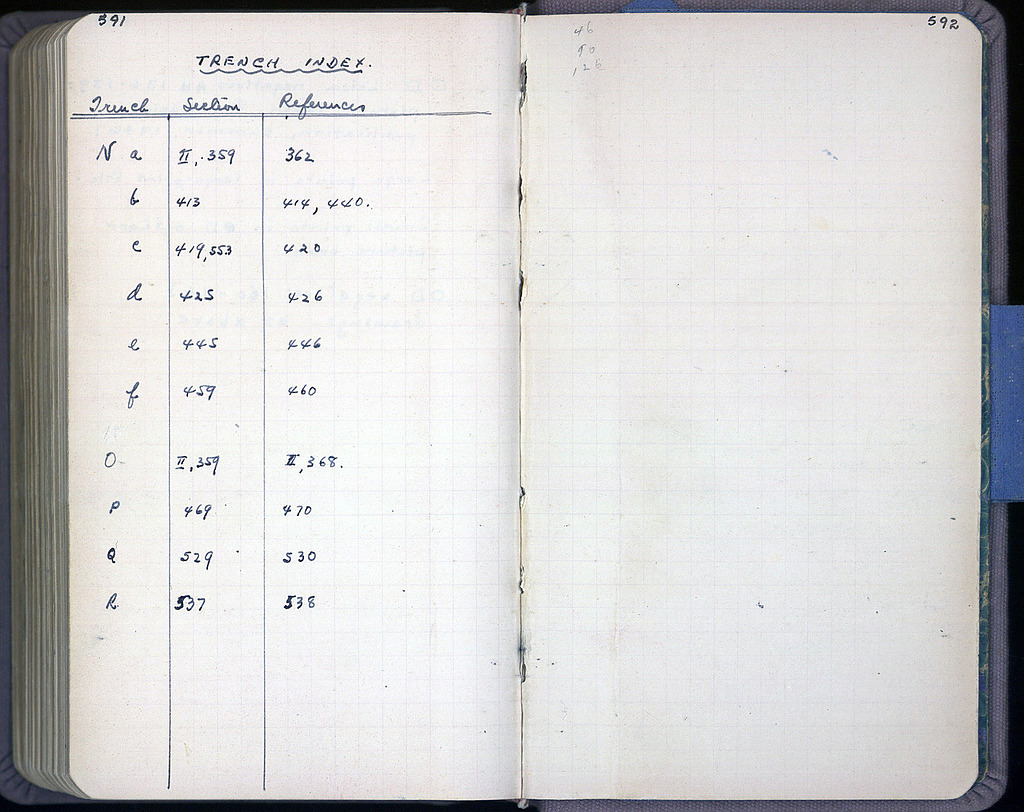 591
TRENCH INDEX.
Trench Section References
N a II, 359 362
b 413 414, 440.
c 419,553 420
d 425 426
e 445 446
f 459 460
O II, 359 II, 368.
P 469 470
Q 529 530
R 537 538
592
46
90
126